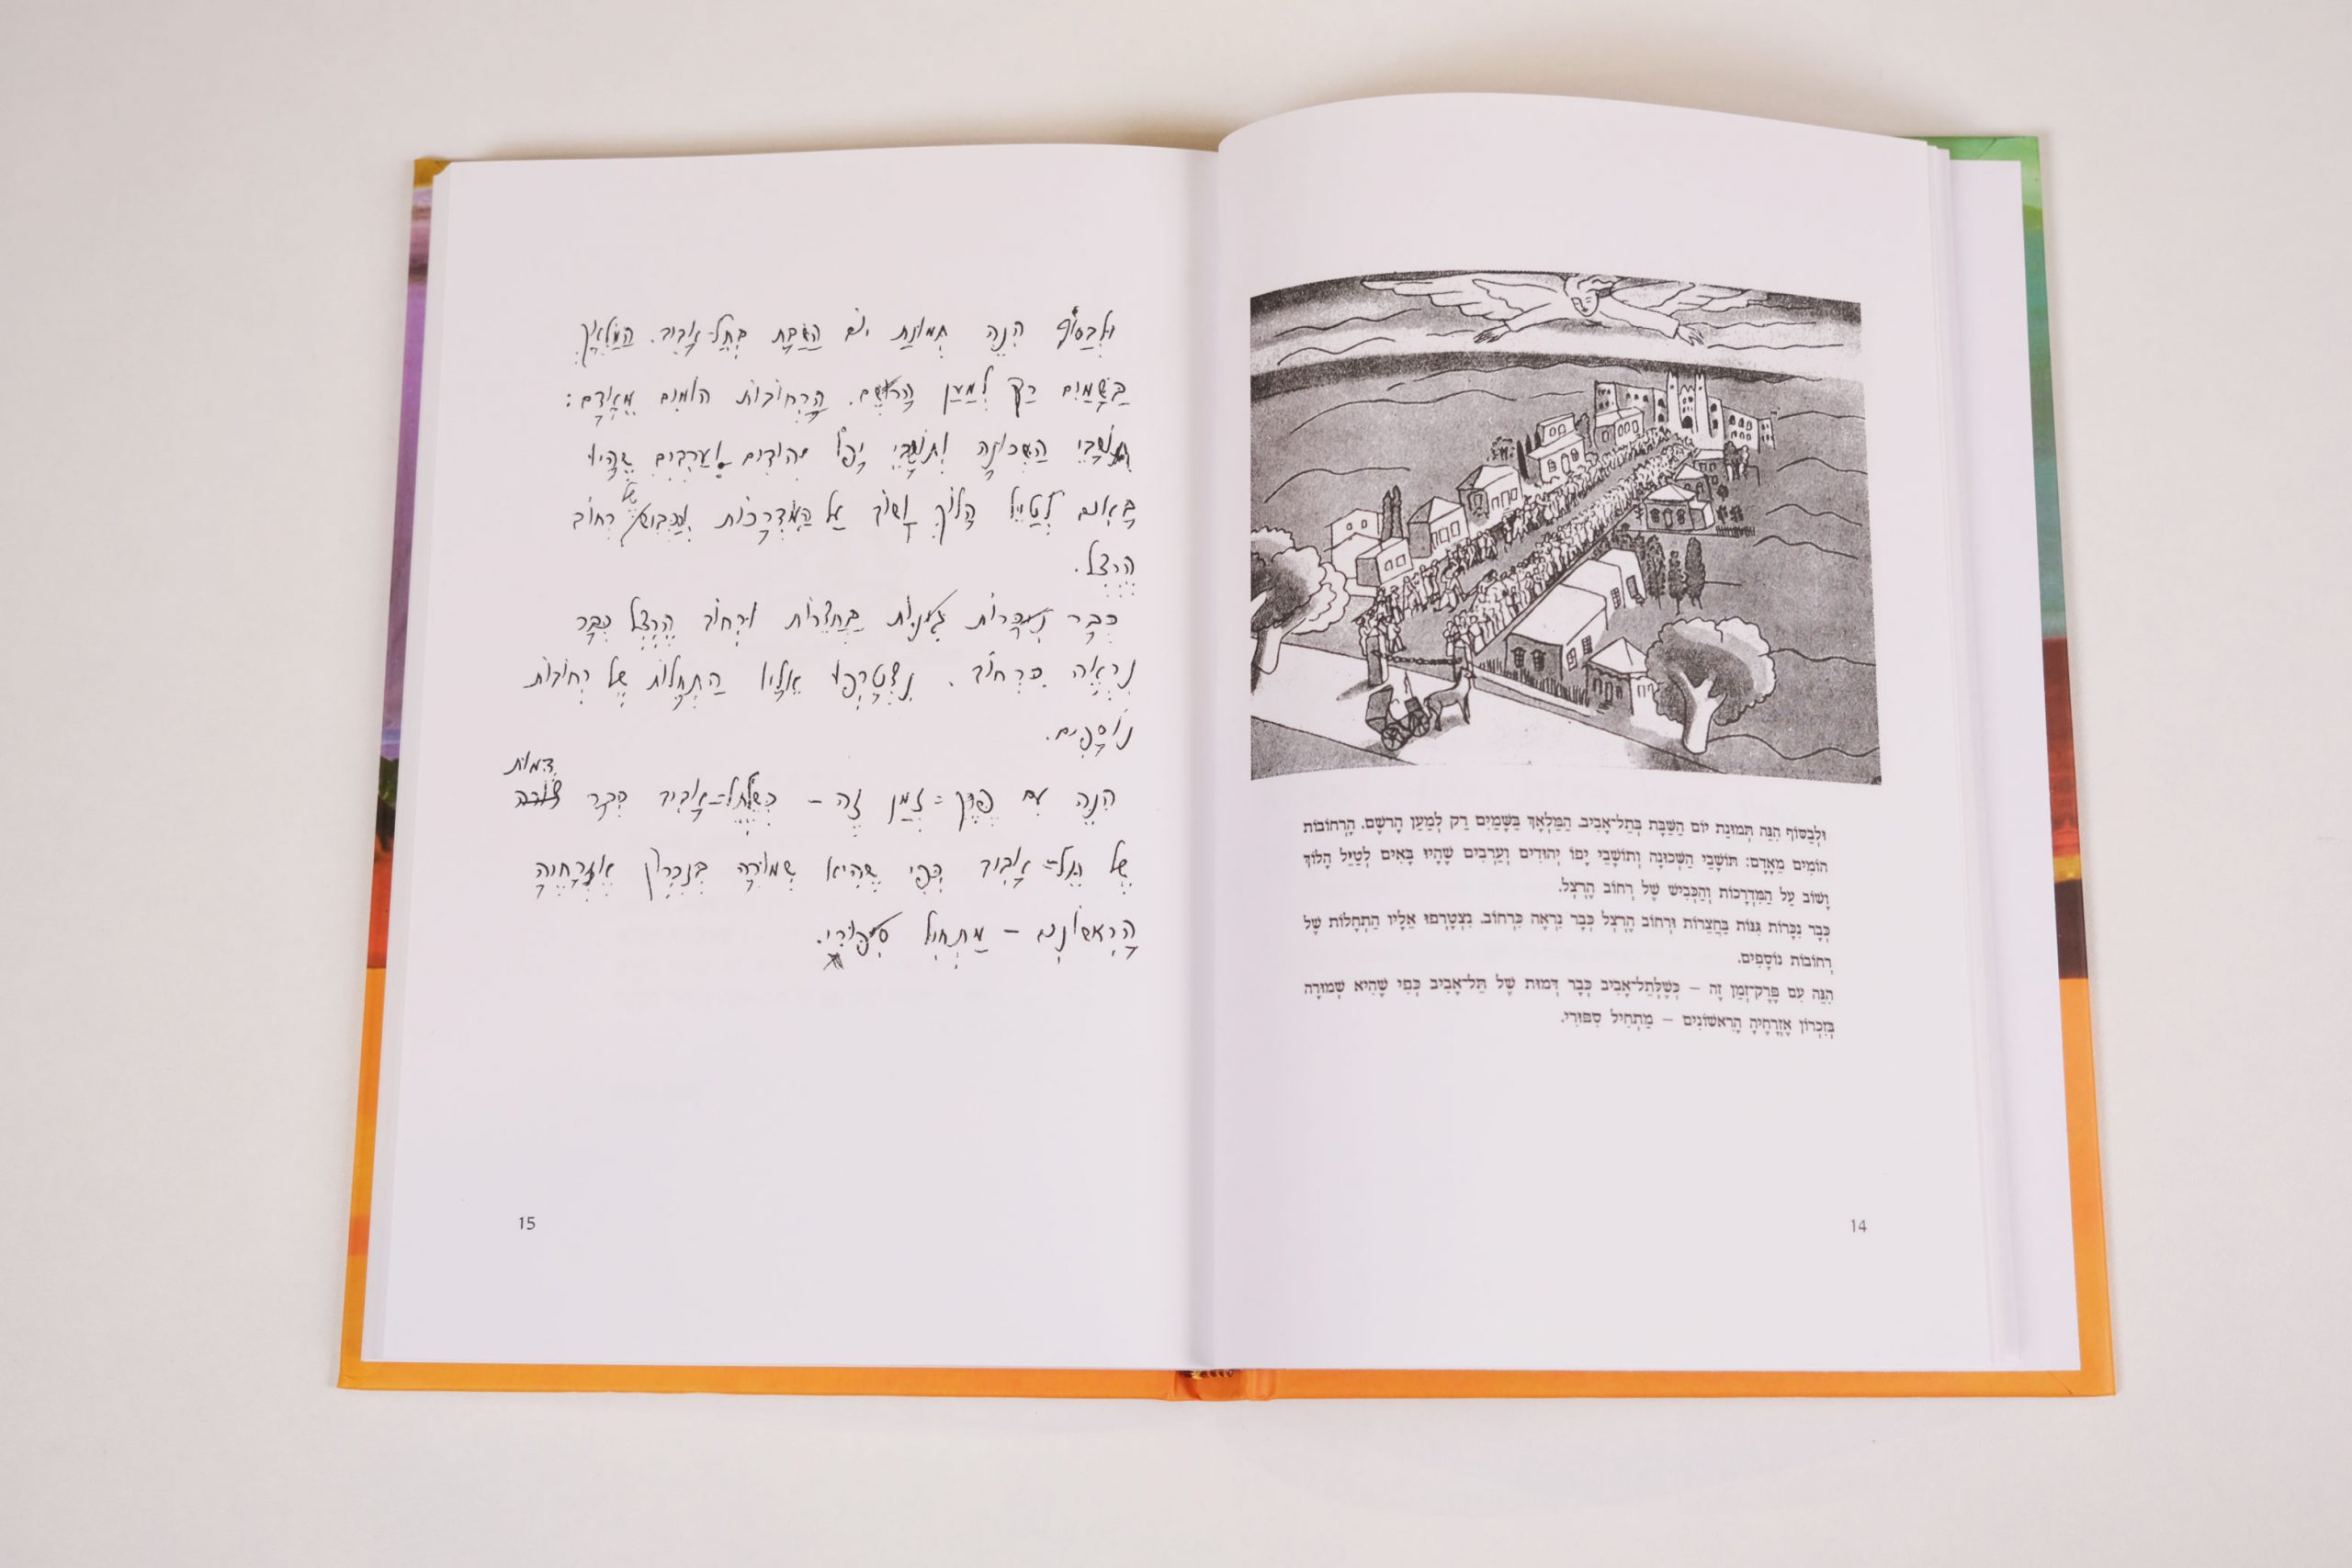 וּלְבַסּוֹף הִנֵּה תְּמוּנַת יוֹם הַשַּׁבָּת בְּתֵל־אָבִיב. הַמַּלְאָךְ בַּשָּׁמַיִם רַק לְמַעַן הָרֹשֶׁם. הָרְחוֹבוֹת
הוֹמִים מֵאָדָם: תּוֹשָׁבֵי הַשְּׁכוּנָה וְתוֹשָׁבֵי יָפוֹ יְהוּדִים וְעַרְבִים שֶׁהָיוּ בָּאִים לְטַיֵּל הָלוֹךְ
וָשׁוֹב עַל הַמִּדְרָכוֹת וְהַכְּבִישׁ שֶׁל רְחוֹב הֶרְצֶל.
כְּבָר נִכָּרוֹת גִּנּוֹת בַּחֲצֵרוֹת וּרְחוֹב הֶרְצֶל כְּבָר נִרְאֶה כִּרְחוֹב. נִצְטָרְפוּ אֵלָיו הַתְחָלוֹת שֶׁל
רְחוֹבוֹת נוֹסָפִים.
הִנֵּה עִם פֶּרֶק־זְמַן זֶה – כְּשֶׁלְּתֵל־אָבִיב כְּבָר דְּמוּת שֶׁל תֵּל־אָבִיב כְּפִי שֶׁהִיא שְׁמוּרָה
בְּזִכְרוֹן אֶזְרָחֶיהָ הָרִאשׁוֹנִים – מַתְחִיל סִפּוּרִי.
14
וּלְבַסּוֹף הִנֵּה תְּמוּנַת יוֹם הַשַּׁבָּת בְּתֵל־אָבִיב. הַמַּלְאָךְ
בַּשָּׁמַיִם רַק לְמַעַן הָרֹשֶׁם. הָרְחוֹבוֹת הוֹמִים מֵאָדָם:
תּוֹשָׁבֵי הַשְּׁכוּנָה וְתוֹשָׁבֵי יָפוֹ יְהוּדִים וְעַרְבִים שֶׁהָיוּ
בָּאִים לְטַיֵּל הָלוֹךְ וָשׁוֹב עַל הַמִּדְרָכוֹת וְהַכְּבִישׁ שֶׁל רְחוֹב
הֶרְצֶל.
כְּבָר נִכָּרוֹת גִּנּוֹת בַּחֲצֵרוֹת וּרְחוֹב הֶרְצֶל כְּבָר
נִרְאֶה כִּרְחוֹב. נִצְטָרְפוּ אֵלָיו הַתְחָלוֹת שֶׁל רְחוֹבוֹת
נוֹסָפִים.
הִנֵּה עִם פֶּרֶק=זְמַן זֶה – כְּשֶׁלְּתֵל=אָבִיב כְּבָר דְּמוּת
שֶׁל תֵּל=אָבִיב כְּפִי שֶׁהִיא שְׁמוּרָה בְּזִכְרוֹן אֶזְרָחֶיהָ
הָרִאשׁוֹנִים – מַתְחִיל סִפּוּרִי.
15